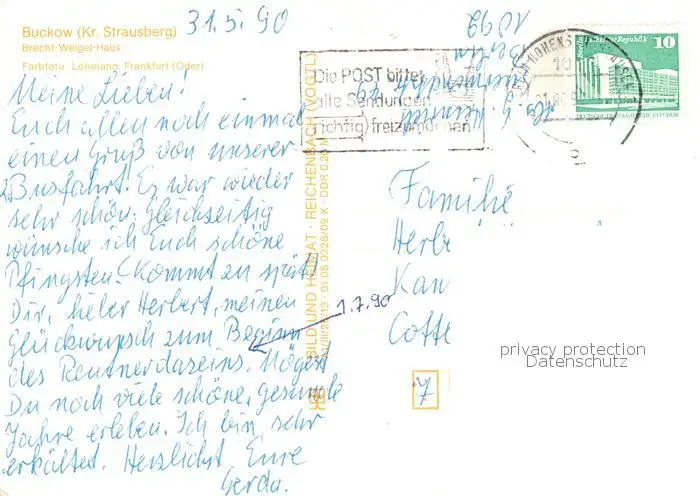 Buckow (Kr. Strausberg)
Brecht-Weigel-Haus
Farbfoto Lehmann, Frankfurt (Oder)
31.5.90
Meine Lieben!
Euch allen noch einmal
einen Gruß von unserer
2. Busfahrt. Es war wieder
sehr schön. Gleichzeitig
wünsche ich Euch schöne
Pfingsten. (Kommt zu spät)
Dir, lieber Herbert, meinen
Glückwunsch zum Beginn
des Rentnerdaseins. Mögest
Du noch viele schöne, gesunde
Jahre erleben. Ich bin sehr
erkältet. Herzlichst Eure
Gerda.
1.7.90
BILD UND HEIMAT · REICHENBACH (VOGTL)
01 08 0328/09 K · DDR 0,20 M
Die POST bittet
alle Sendungen
richtig freizumachen
Berlin
10
Familie
Herb
Kan
Cottb
7
privacy protection
Datenschutz